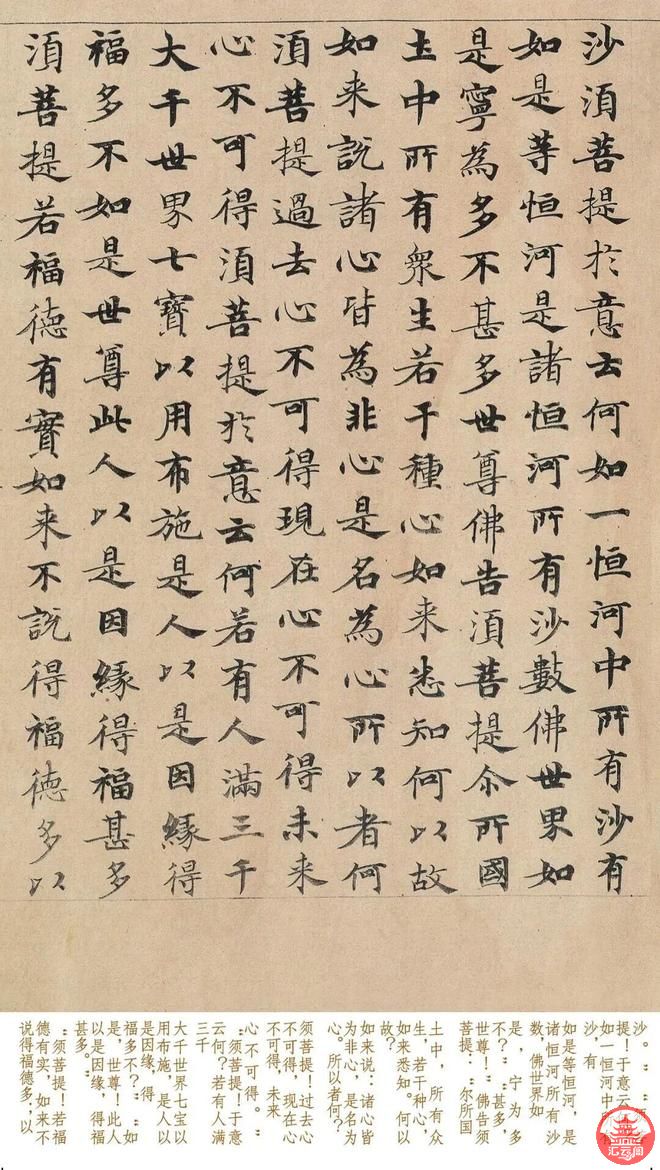 沙須菩提於意云何如一恒河中所有沙有
如是等恒河是諸恒河所有沙數佛世界如
是寧為多不甚多世尊佛告須菩提尒所國
土中所有衆生若干種心如来悉知何以故
如来說諸心皆為非心是名為心所以者何
須菩提過去心不可得現在心不可得未来
心不可得須菩提於意云何若有人滿三千
大千世界七寶以用布施是人以是因緣得
福多不如是世尊此人以是因緣得福甚多
須菩提若福德有實如来不說得福德多以
沙。"
提！于意云
如一恒河中
沙，有
如是等恒河，是
诸恒河所有沙
数，佛世界如
是，宁为多
不？""甚多，
世尊！"佛告须
菩提："尔所国
土中，所有众
生，若干种心，
如来悉知。何以
故？
如来说：诸心皆
为非心，是名为
心。所以者何？
须菩提！过去心
不可得，现在心
不可得，未来
心不可得。"
"须菩提！于意
云何？若有人满
三千
大千世界七宝以
用布施，是人以
是因缘，得
福多不？""如
是，世尊！此人
以是因缘，得福
甚多。"
"须菩提！若福
德有实，如来不
说得福德多，以
汇云阁